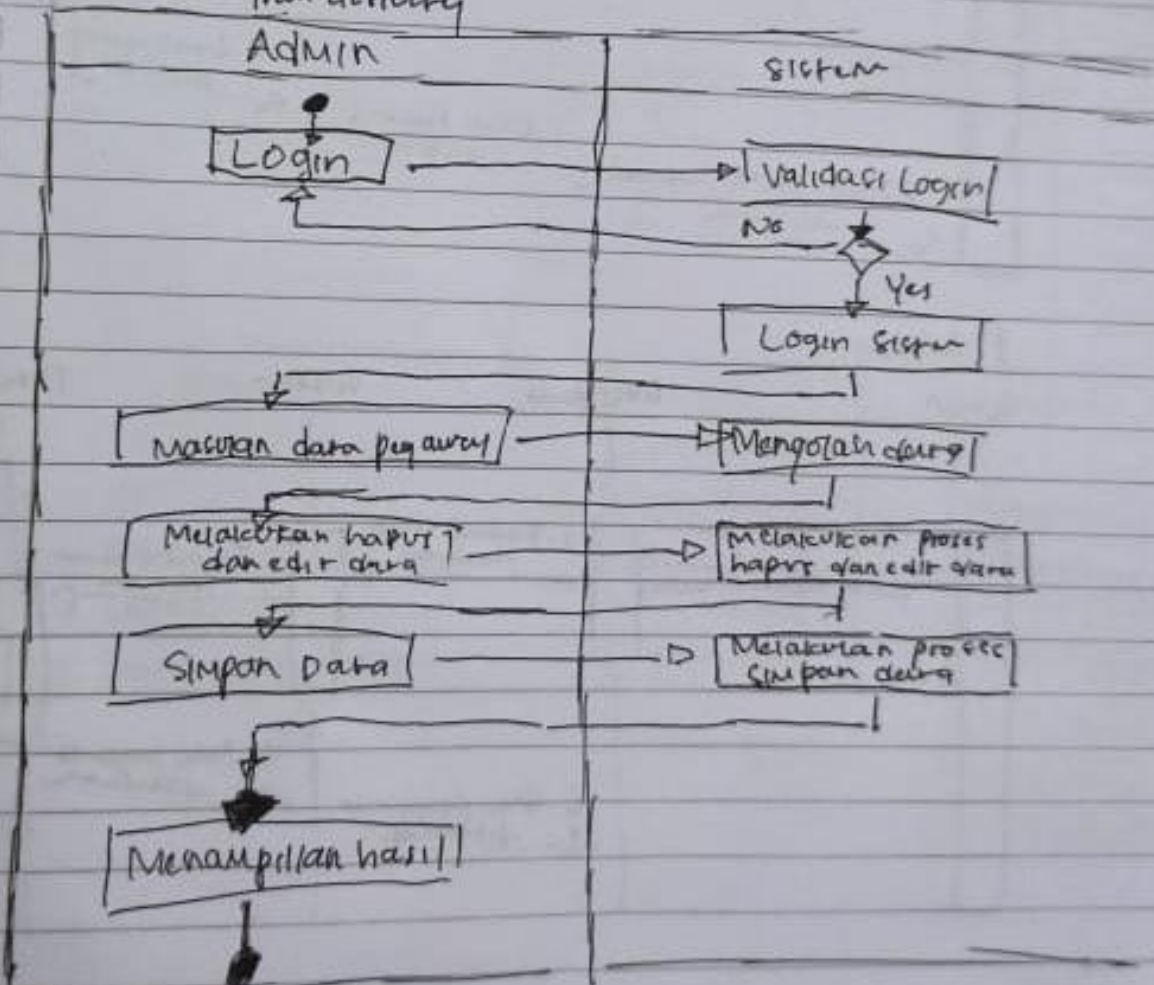 Admin
Sistem
Login
Validasi Login
No
Yes
Login Sistem
Masukan data pegawai
Mengolah data
Melakukan hapus
dan edit data
Melakukan proses
hapus dan edit data
Simpan Data
Melakukan proses
simpan data
Menampilkan hasil